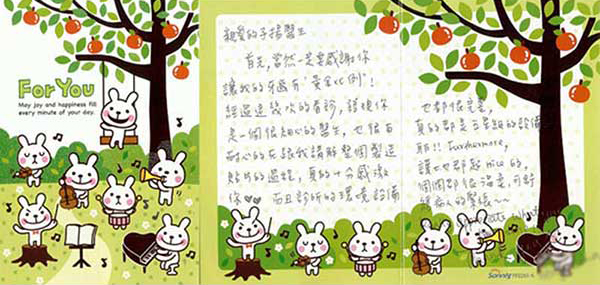 For You
May joy and happiness fill
every minute of your day.
親愛的子揚醫生
首先,當然一定要感謝你
讓我的牙齒有"黃金比例"!
經過這幾次的看診,發現你
是一個很細心的醫生,也很有
耐心的在跟我講解整個製造
貼片的過程,真的十分感激
你♡♡ 而且診所的環境設備
也都很完整,
真的都是五星級的設備
耶!! Furthermore,
護士也都超nice的,
個個都很溫柔,可舒
緩病人的緊張~~
Sonny